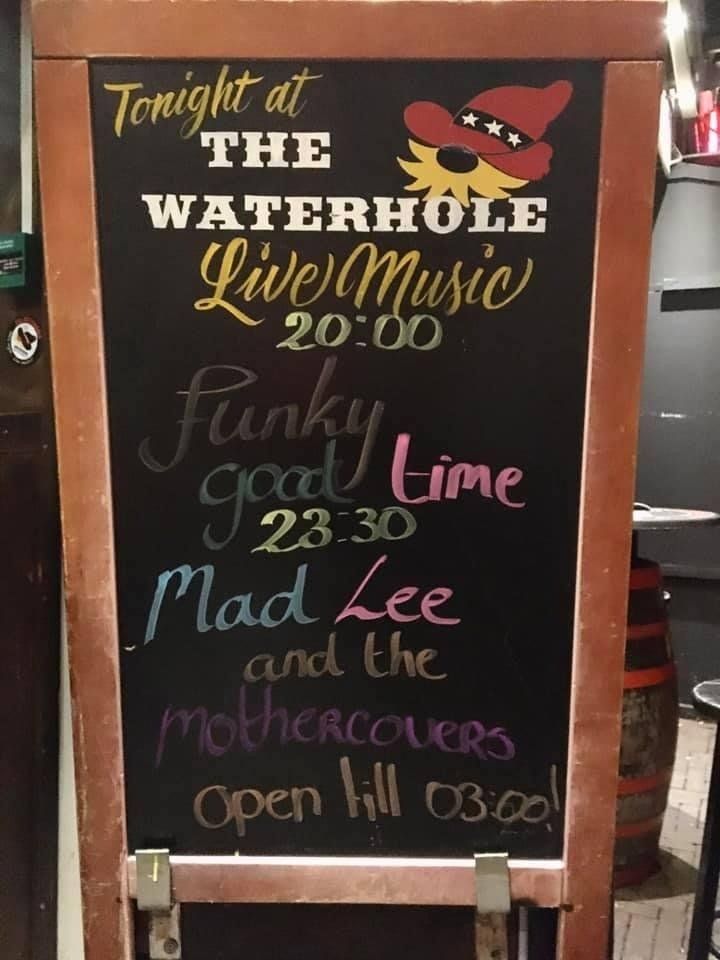 Tonight at
THE
WATERHOLE
Live Music
20:00
Funky
good time
23:30
Mad Lee
and the
mothercovers
open till 03:00!